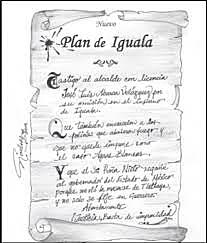 Nuevo
Plan de Iguala
Castigo al alcalde con licencia
José Luis Abarca Velázquez por
su omisión en el infierno
de Iguala.
Que también encarcelen a los
policías que abrieron fuego y
que no quede impune como
el caso Aguas Blancas.
Y que el Sr. Peña Nieto regañe
al gobernador del Estado de México
porque se la masacre de Tlatlaya,
y no solo se fije en Guerrero.
Atentamente
Basta de impunidad